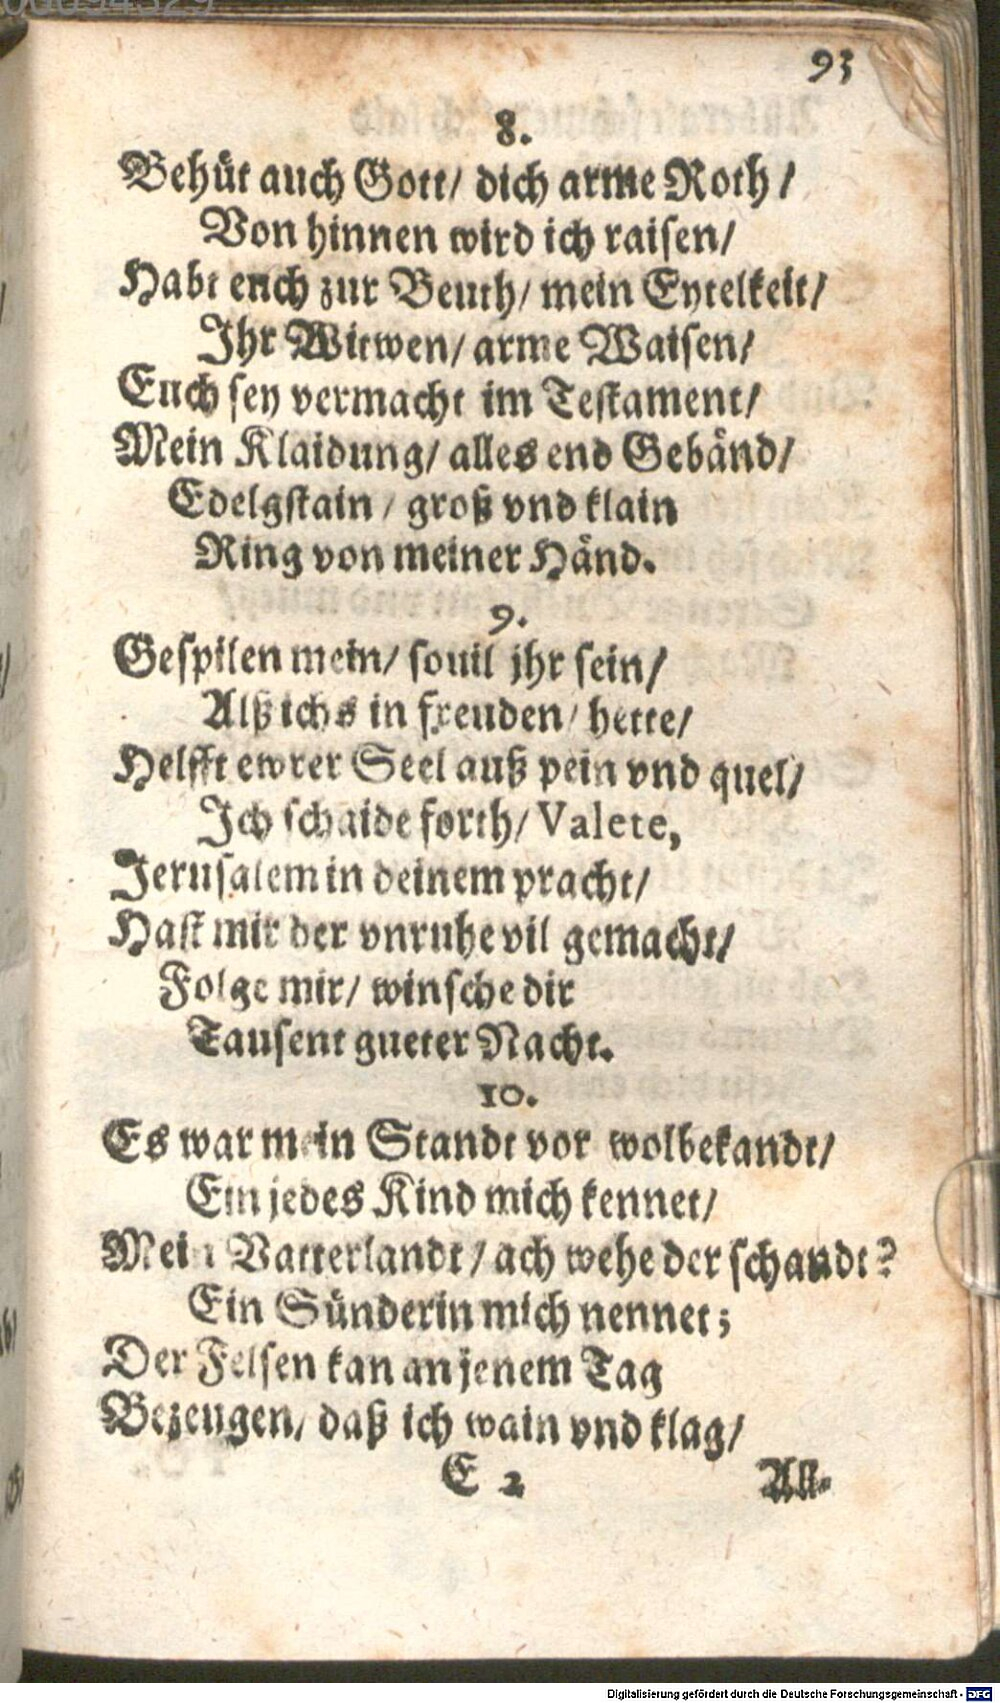 93
8.
Behüt auch Gott/ dich arme Roth/
Von hinnen wird ich raisen/
Habt euch zur Beuth/ mein Eytelkeit/
Ihr Witwen/ arme Waisen/
Euch sey vermacht im Testament/
Mein Klaidung/ alles end Gebänd/
Edelgstain/ groß vnd klain
Ring von meiner Händ.
9.
Gespilen mein/ souil jhr sein/
Alß ichs in freuden/ hette/
Helfft ewrer Seel auß pein vnd quel/
Ich schaide forth/ Valete,
Jerusalem in deinem pracht/
Hast mir der vnruhe vil gemacht/
Folge mir/ winsche dir
Tausent gueter Nacht.
10.
Es war mein Standt vor wolbekandt/
Ein jedes Kind mich kennet/
Mein Vatterlandt/ ach wehe der schandt?
Ein Sünderin mich nennet;
Der Felsen kan an jenem Tag
Bezeugen/ daß ich wain vnd klag/
E 2 All-
Digitalisierung gefördert durch die Deutsche Forschungsgemeinschaft - DFG